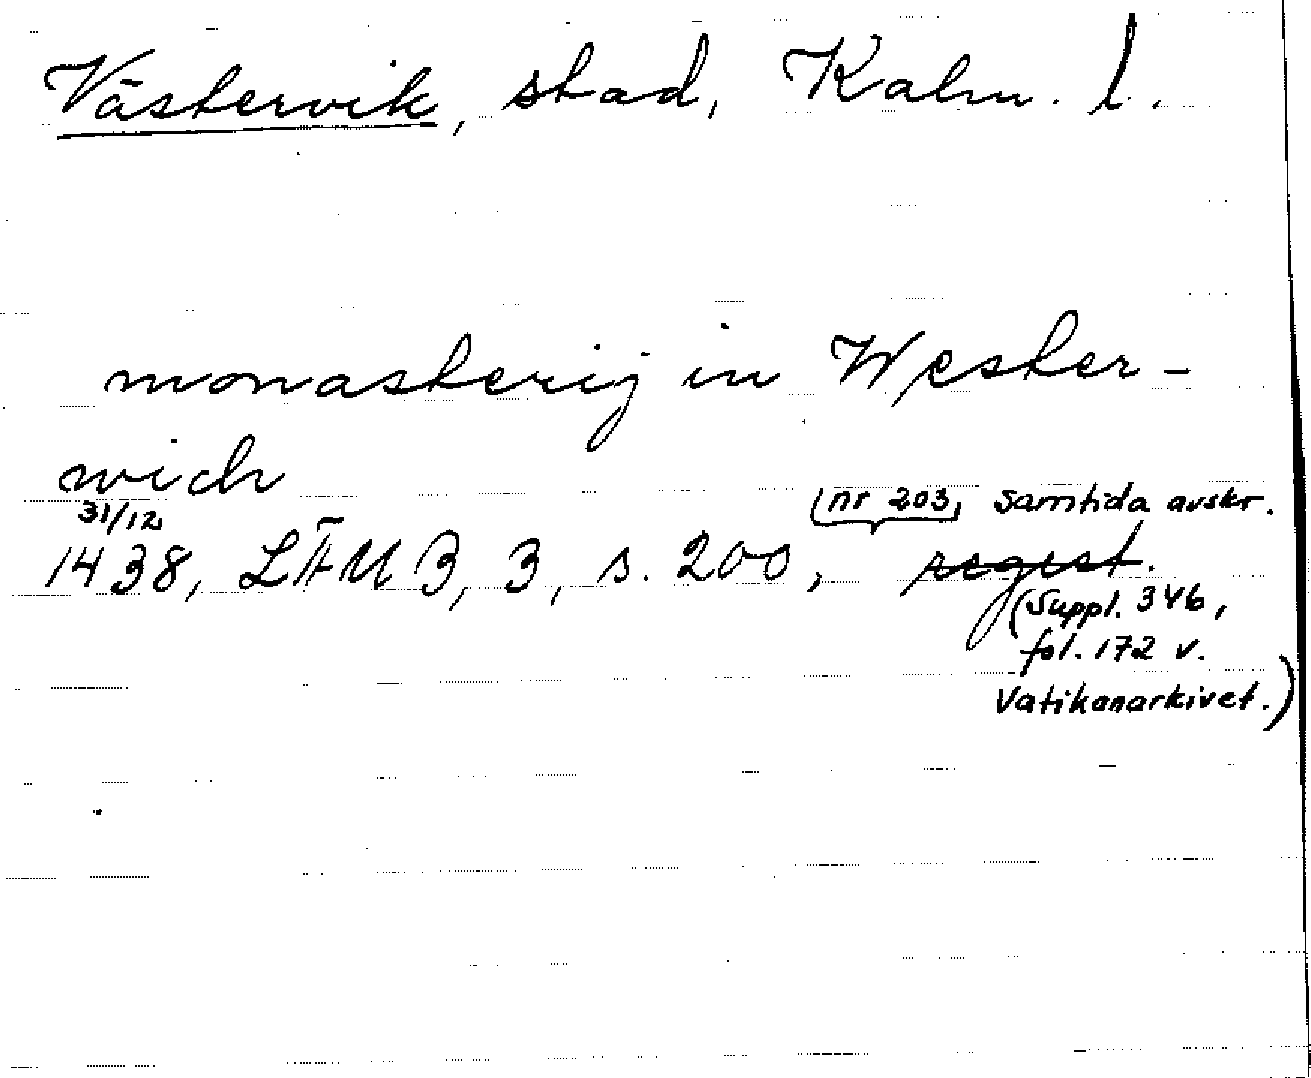 Västervik, stad, Kalm. l.
monasterij in Wester-
wich
31/12
1438, LÄU 3, 3, s. 200, (nr 203, samtida avskr.
regest.
(Suppl. 346,
fol. 172 v.
Vatikanarkivet.)